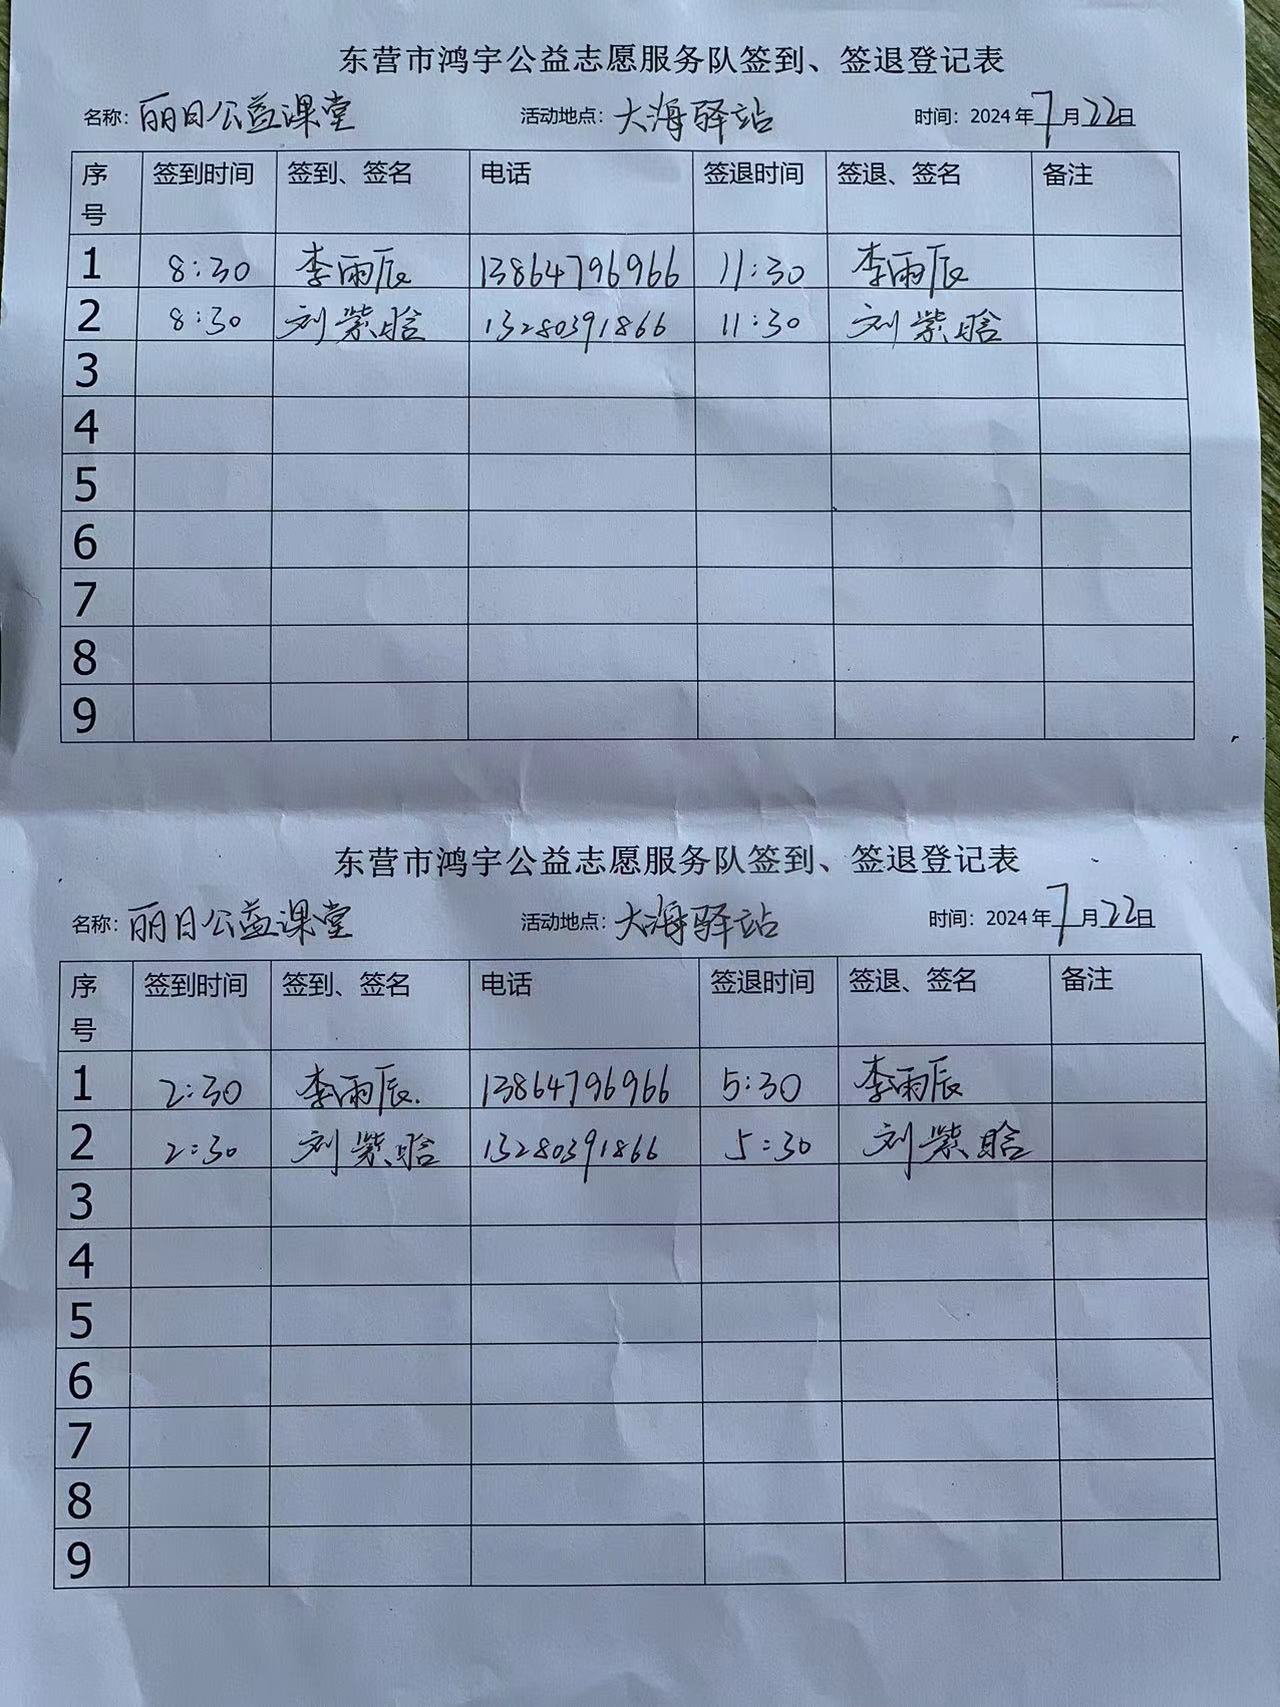 东营市鸿宇公益志愿服务队签到、签退登记表
名称：丽日公益课堂 活动地点：大海驿站 时间：2024年7月22日
序号 签到时间 签到、签名 电话 签退时间 签退、签名 备注
1 8:30 李雨辰 13864796966 11:30 李雨辰
2 8:30 刘紫晗 13280391866 11:30 刘紫晗
3
4
5
6
7
8
9
东营市鸿宇公益志愿服务队签到、签退登记表
名称：丽日公益课堂 活动地点：大海驿站 时间：2024年7月22日
序号 签到时间 签到、签名 电话 签退时间 签退、签名 备注
1 2:30 李雨辰. 13864796966 5:30 李雨辰
2 2:30 刘紫晗 13280391866 5:30 刘紫晗
3
4
5
6
7
8
9